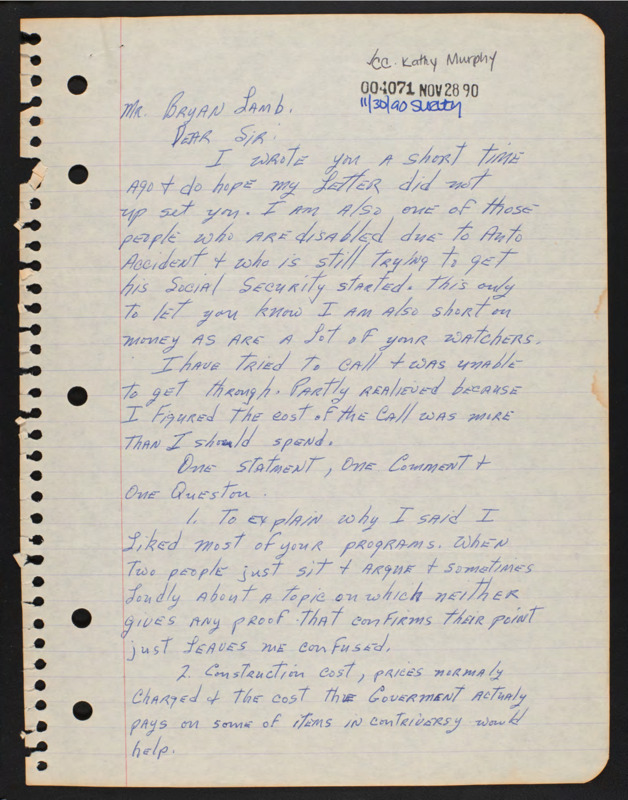 √CC. Kathy Murphy
004071 NOV 28 90
11/30/90 Suetty
Mr. Bryan Lamb.
Dear Sir:
I wrote you a short time
ago + do hope my Letter did not
up set you. I am also one of those
people who are disabled due to Auto
Accident + who is still trying to get
his Social Security started. this only
to let you know I am also short on
money as are a Lot of your watchers.
I have tried to call + was unable
to get through. Partly realieved because
I figured the cost of the Call was more
than I should spend.
One statment, one Comment +
one Queston.
1. To explain why I said I
Liked most of your programs. When
two people just sit + Argue + sometimes
Loudly about a topic on which neither
gives any proof that confirms their point
just Leaves me confused.
2. Construction cost, prices normaly
Charged + the cost the Goverment Actualy
pays on some of items in contriversy would
help.